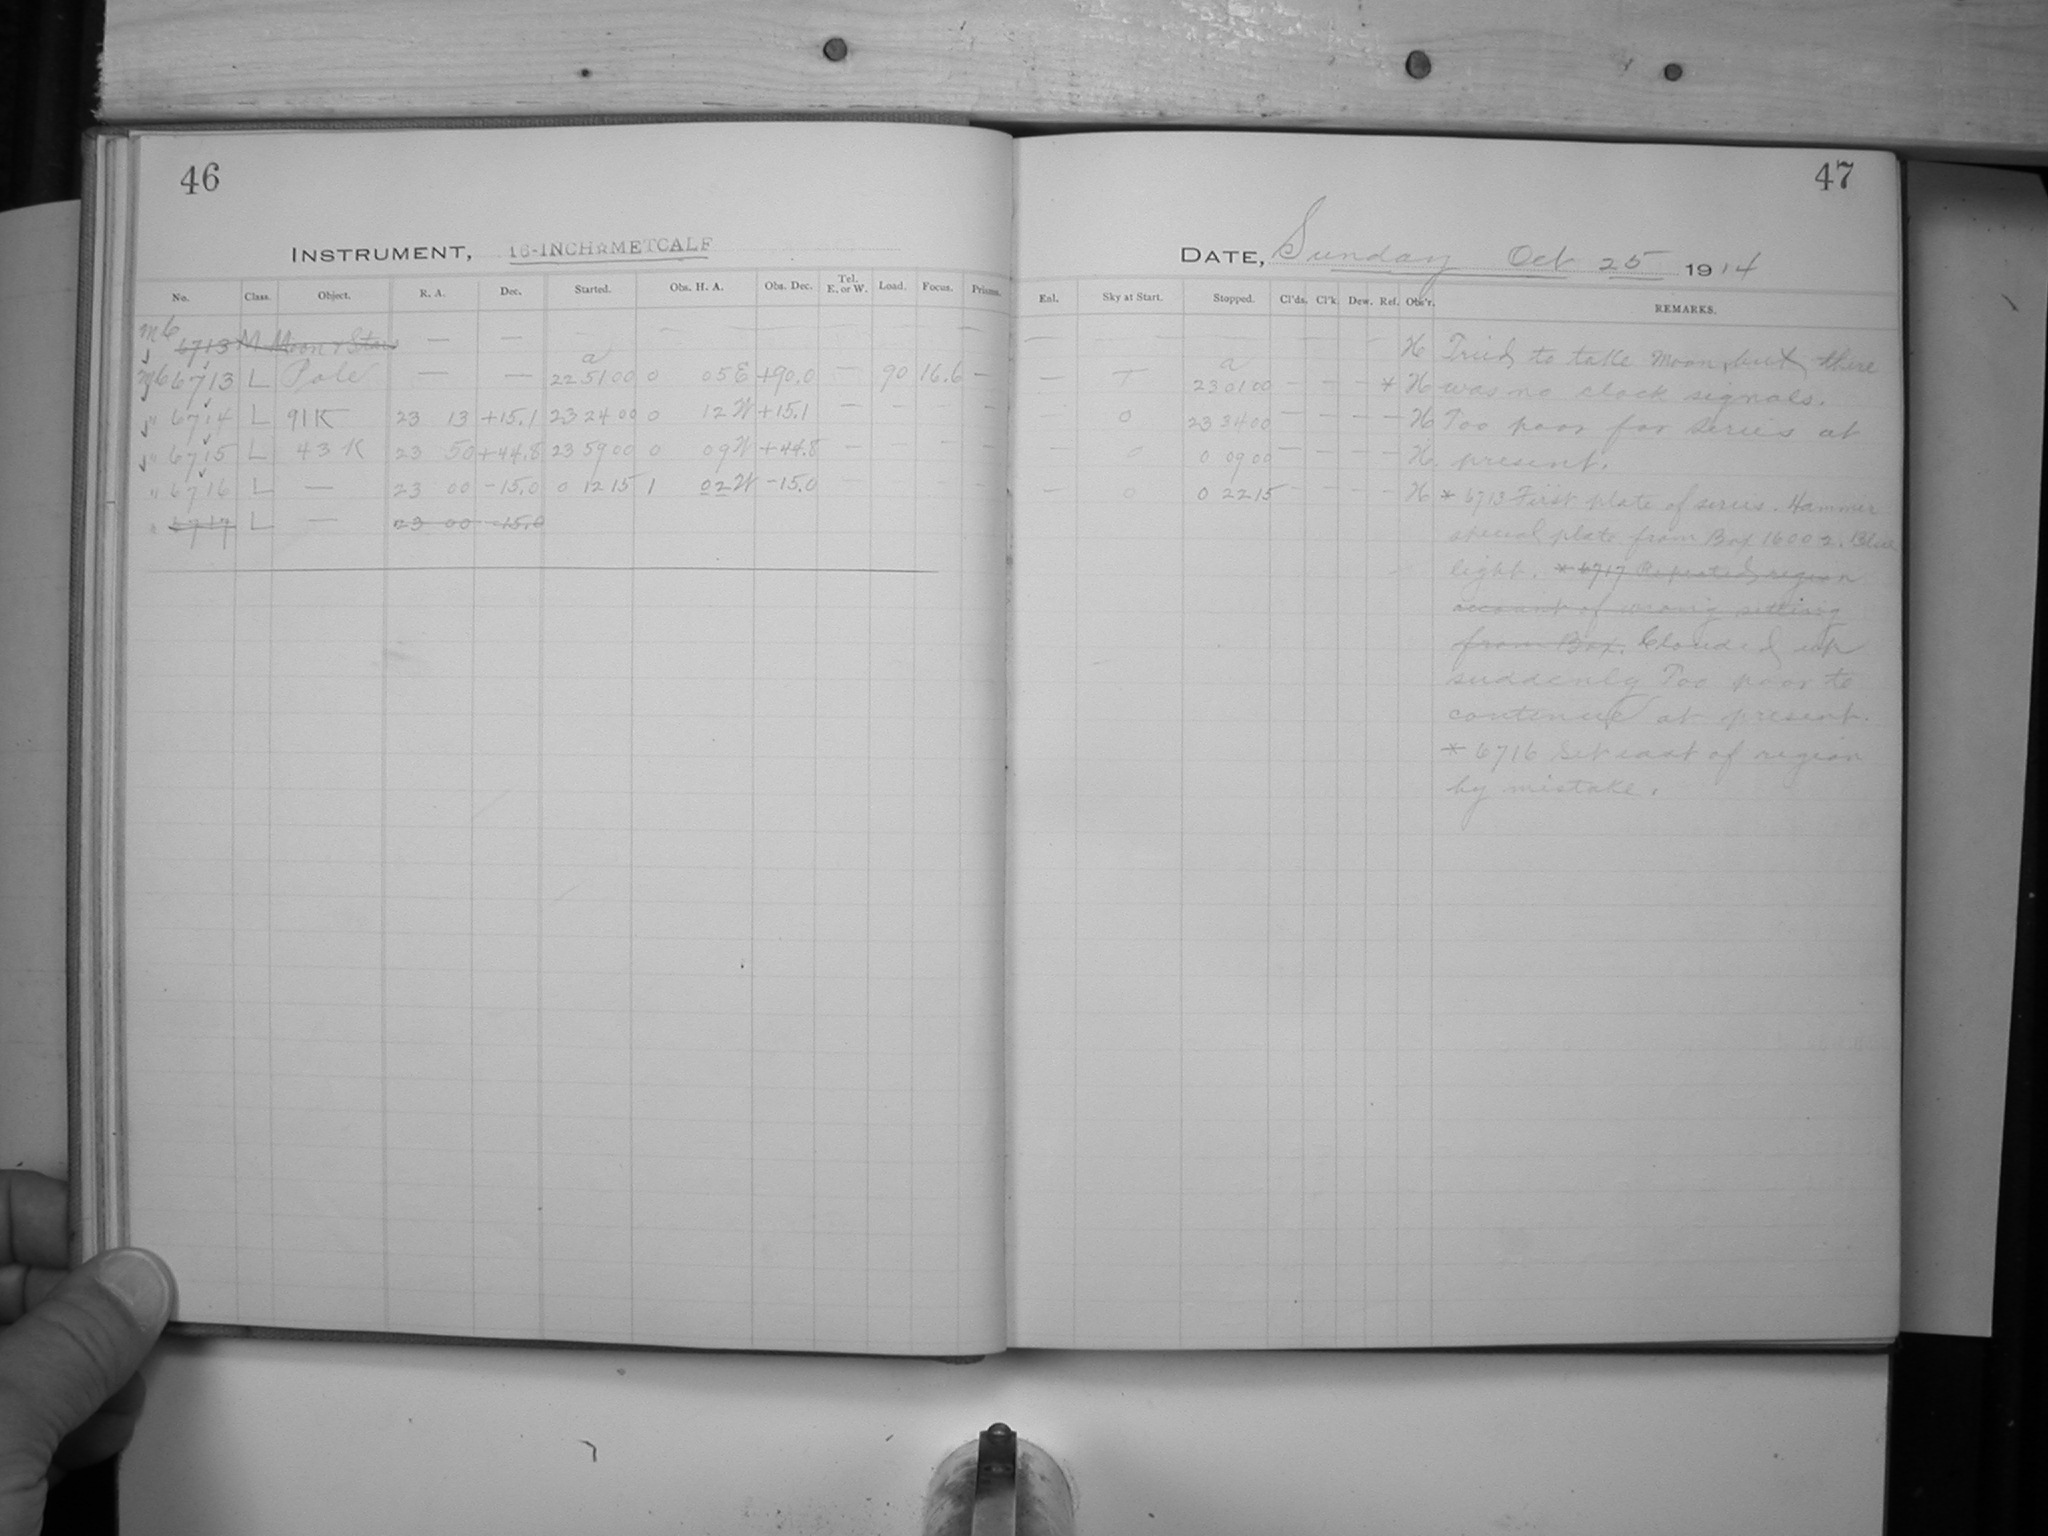 46
INSTRUMENT, 16-INCH☆METCALF
No. Class. Object. R. A. Dec. Started. Obs. H. A. Obs. Dec. Tel. E. or W. Load. Focus. Prisms.
MC 6713 M Moon & Stars — — — — —
a
MC 6713 L Pole — — 22 51 00 0 05 E +90.0 — 90 16.6 —
" 6714 L 91 K 23 13 +15.1 23 24 00 0 12 W +15.1 — — — —
" 6715 L 43 K 23 50 +44.8 23 59 00 0 09 W +44.8 — — — —
" 6716 L — 23 00 -15.0 0 12 15 1 02 W -15.0 — — — —
" 6717 L — 23 00 -15.0
47
DATE, Sunday Oct 25 1914
Enl. Sky at Start. Stopped. Cl'ds. Cl'k. Dew. Ref. Obs'r. REMARKS.
— — — — — — — H Tried to take Moon, but there
a
— T 23 01 00 — — — * H was no clock signals.
— 0 23 34 00 — — — — H Too poor for series at
— 0 0 09 00 — — — — H present.
— 0 0 22 15 — — — — H * 6713 First plate of series. Hammer
special plate from Box 16002. Blue
light. * 6717 Repeated region
account of wrong setting
from Box. Clouded up
suddenly Too poor to
continue at present.
* 6716 Set east of region
by mistake.